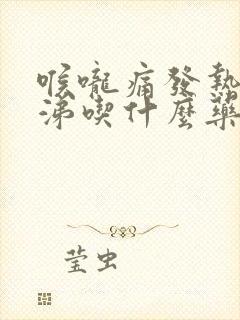 喉嚨痛發熱
涕喫什麼藥
莹虫